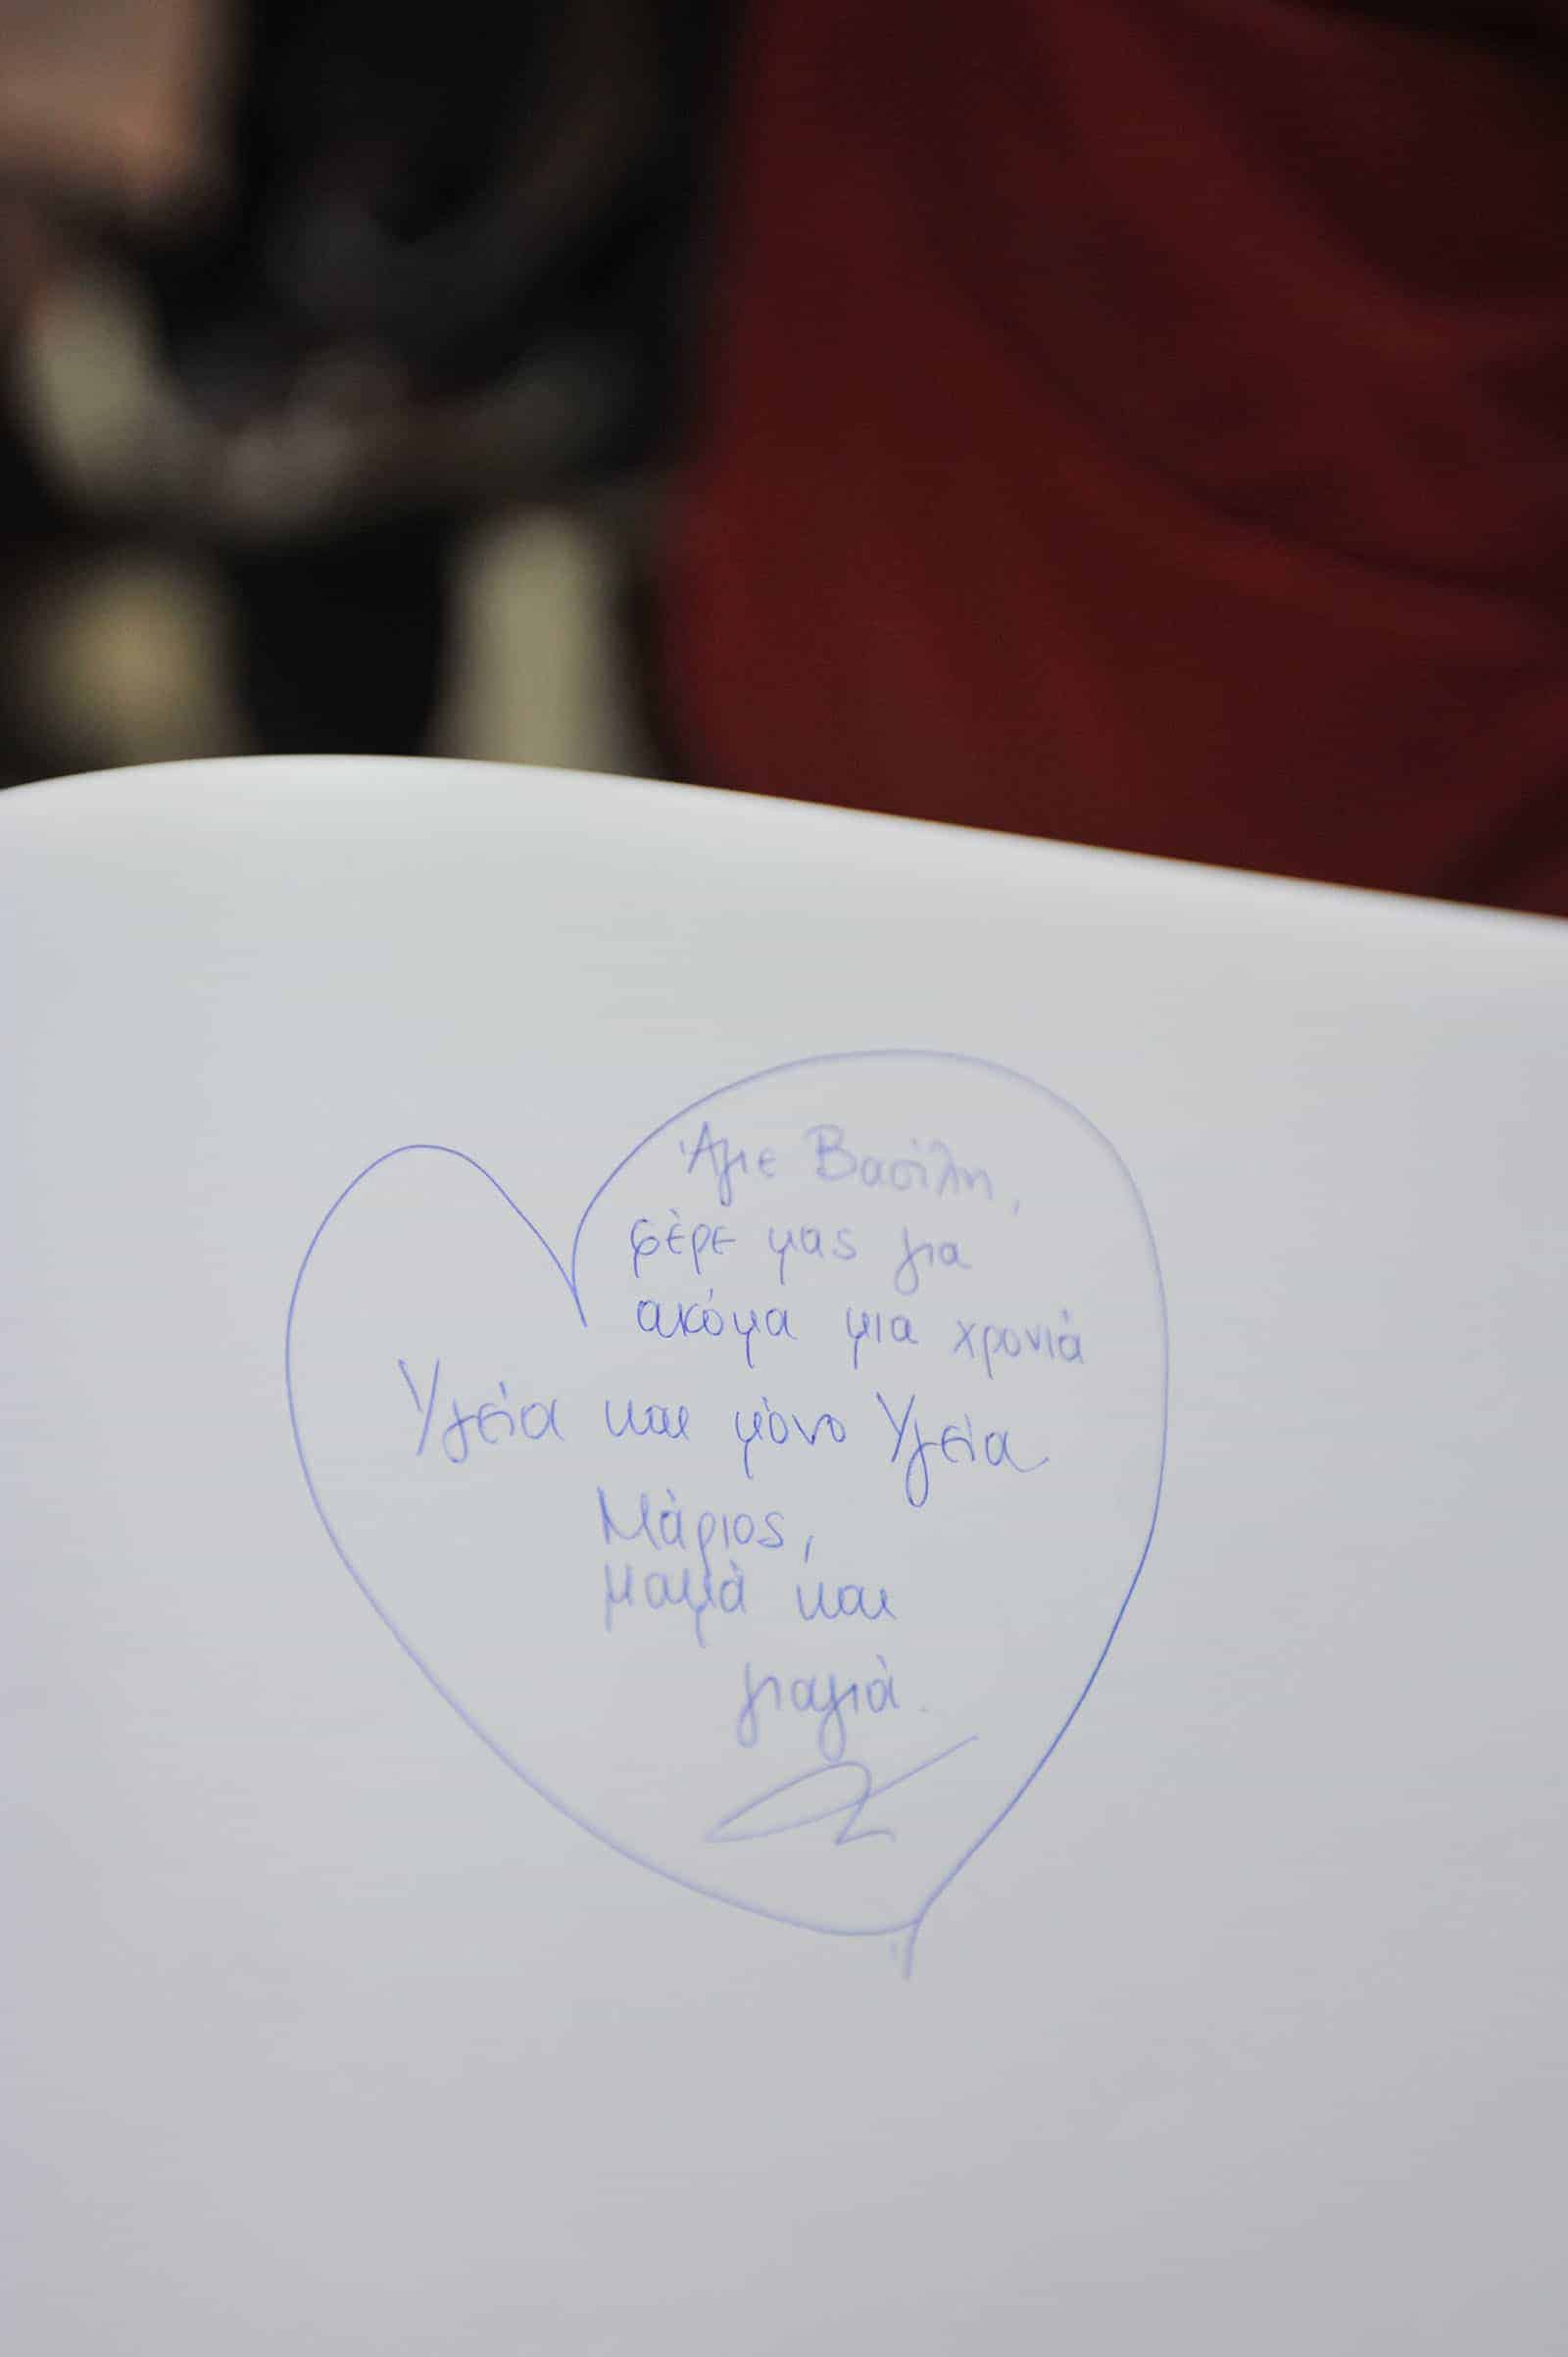 Άγιε Βασίλη,
φέρε μας για
ακόμα μια χρονιά
Υγεία και μόνο Υγεία
Μάριος,
μαμά και
γιαγιά.